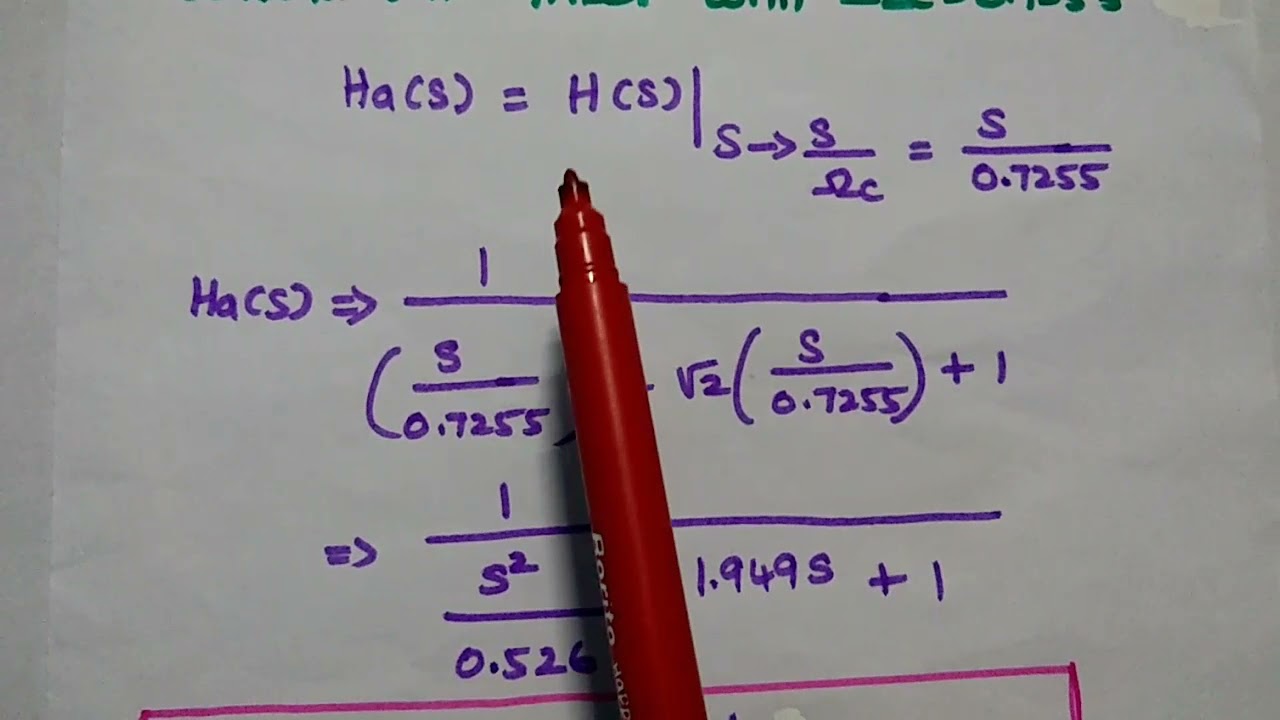 Ha(S) = H(S)| S→ S/Ωc = S/0.7255
Ha(S) ⇒ 1 / (S/0.7255) √2 (S/0.7255) + 1
⇒ 1 / S²/0.526 1.949S + 1